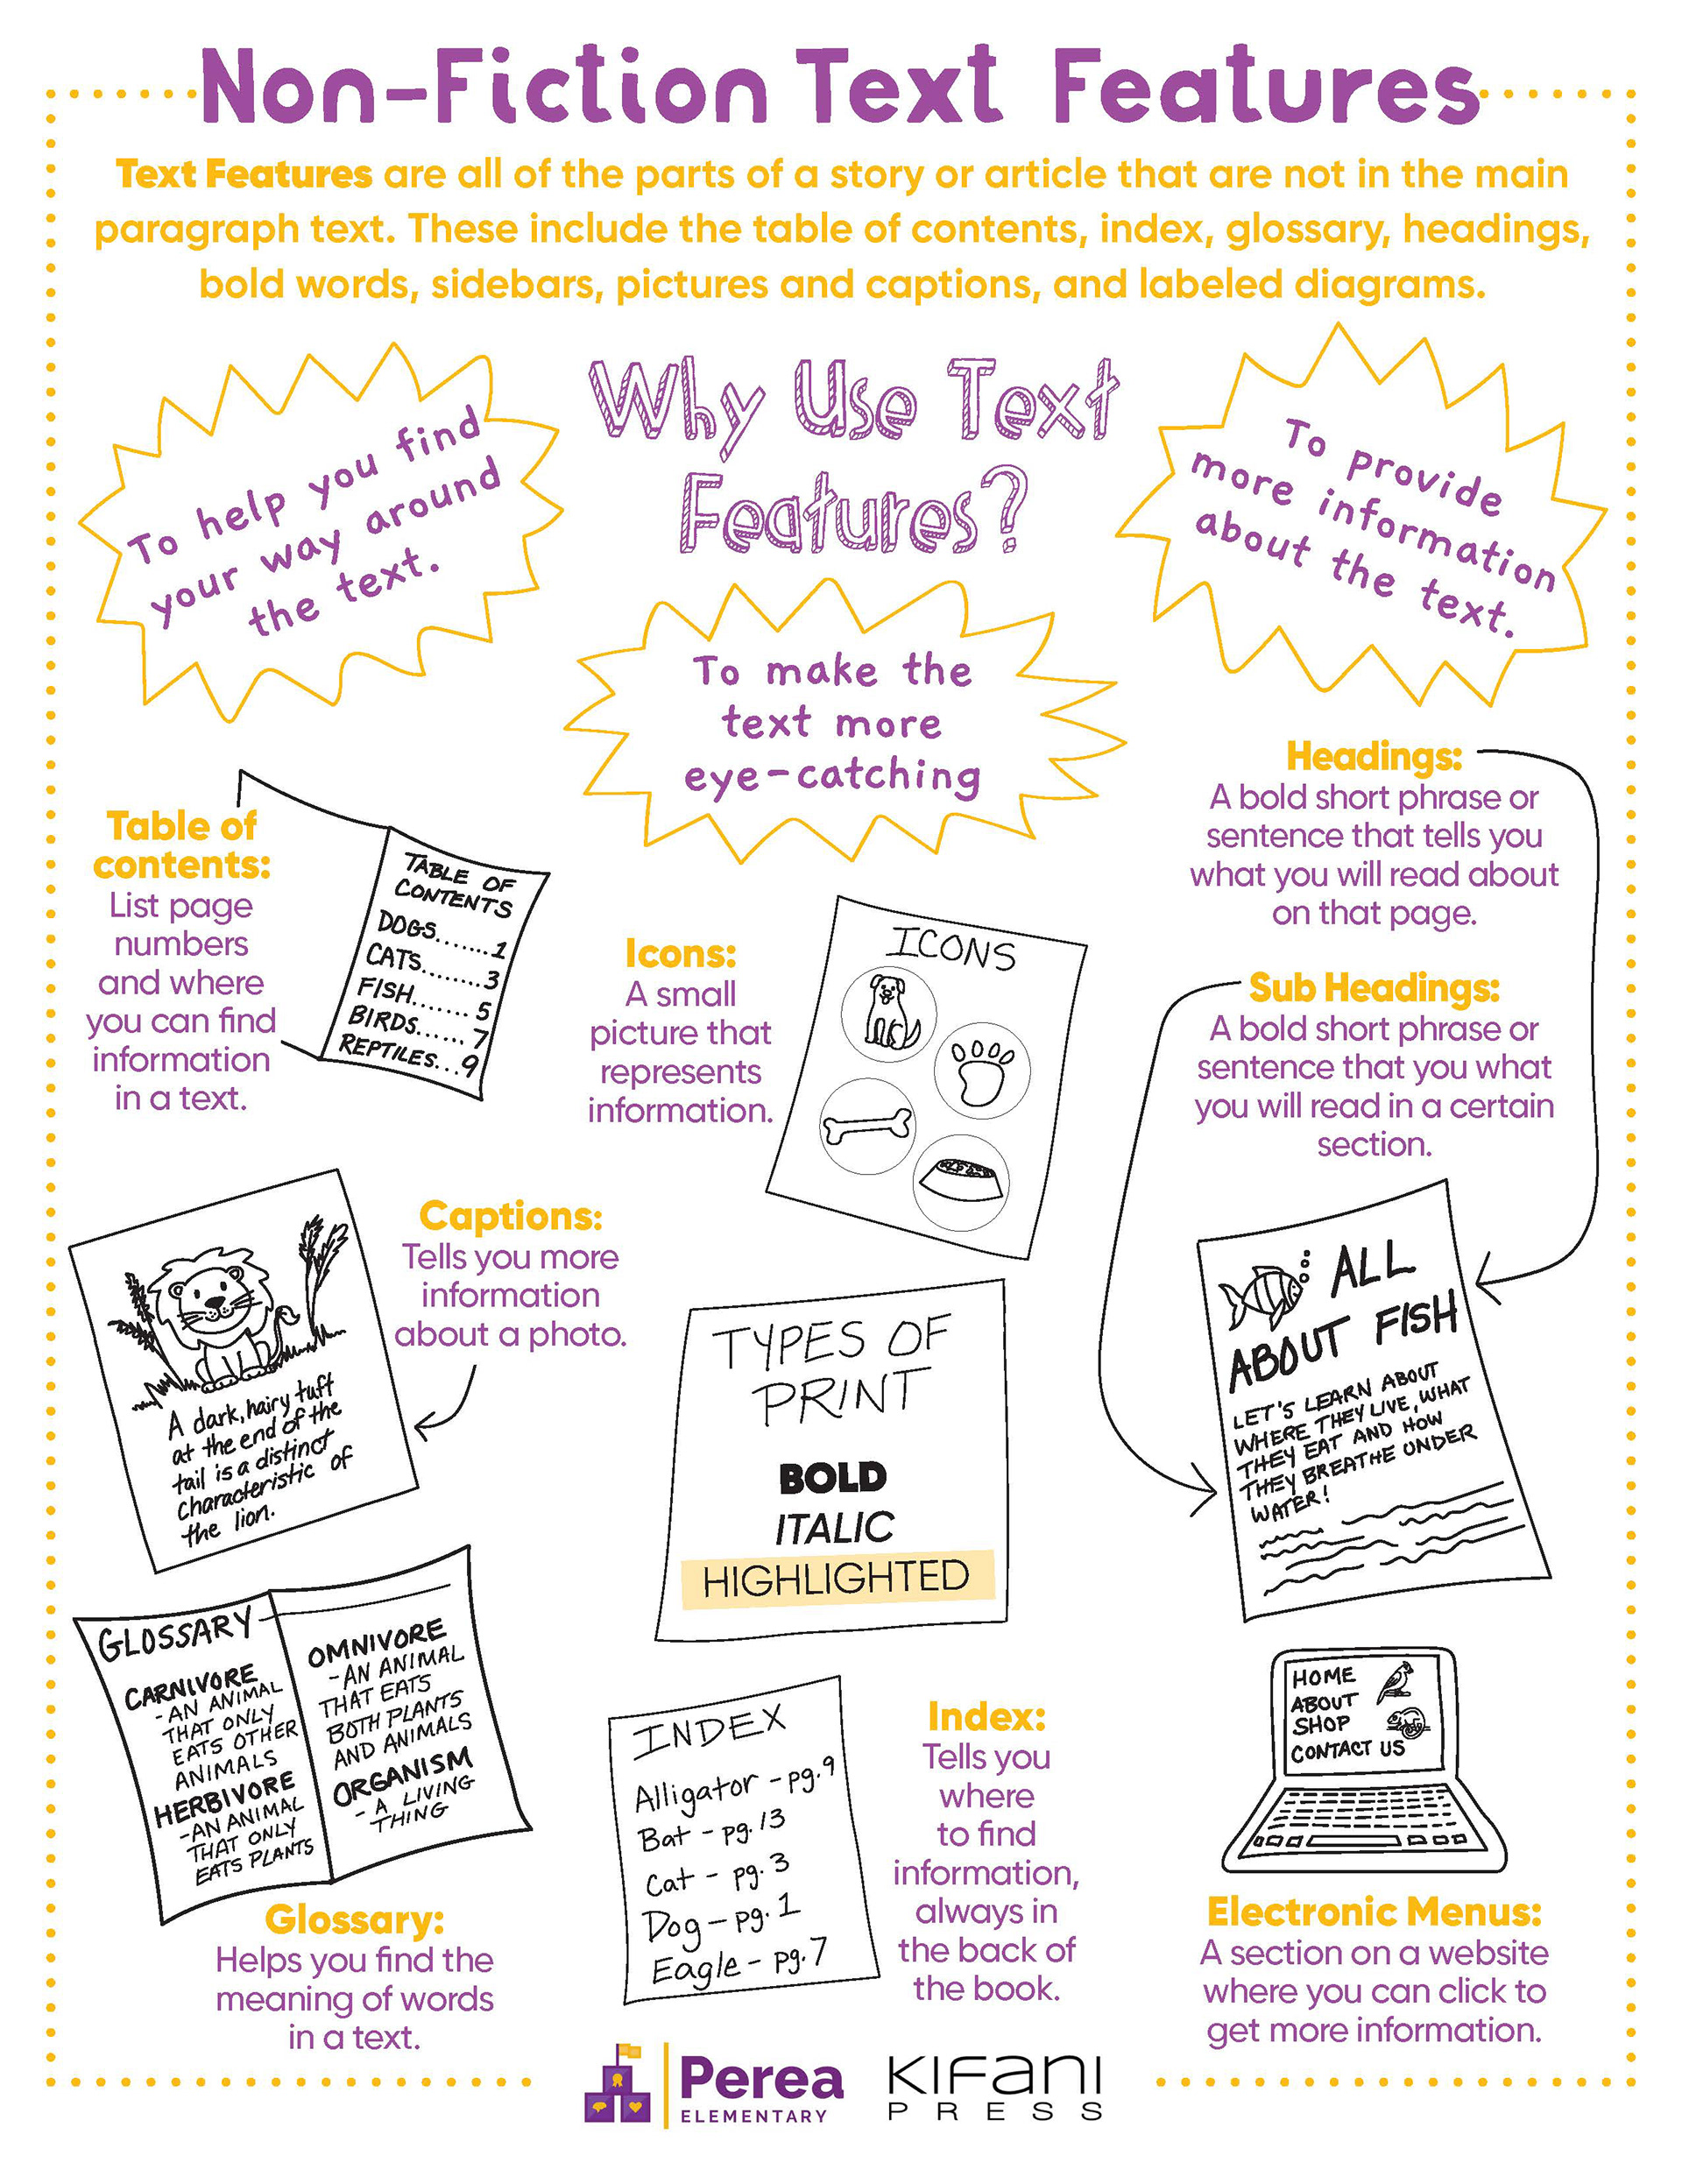 Non-Fiction Text Features
Text Features are all of the parts of a story or article that are not in the main
paragraph text. These include the table of contents, index, glossary, headings,
bold words, sidebars, pictures and captions, and labeled diagrams.
Why Use Text
Features?
To help you find
your way around
the text.
To make the
text more
eye-catching
To provide
more information
about the text.
Table of
contents:
List page
numbers
and where
you can find
information
in a text.
TABLE OF
CONTENTS
DOGS.......1
CATS.......3
FISH.......5
BIRDS......7
REPTILES...9
Icons:
A small
picture that
represents
information.
ICONS
Headings:
A bold short phrase or
sentence that tells you
what you will read about
on that page.
Sub Headings:
A bold short phrase or
sentence that you what
you will read in a certain
section.
ALL
ABOUT FISH
LET'S LEARN ABOUT
WHERE THEY LIVE, WHAT
THEY EAT AND HOW
THEY BREATHE UNDER
WATER!
Captions:
Tells you more
information
about a photo.
A dark, hairy tuft
at the end of the
tail is a distinct
characteristic of
the lion.
TYPES OF
PRINT
BOLD
ITALIC
HIGHLIGHTED
GLOSSARY
CARNIVORE
-AN ANIMAL
THAT ONLY
EATS OTHER
ANIMALS
HERBIVORE
-AN ANIMAL
THAT ONLY
EATS PLANTS
OMNIVORE
-AN ANIMAL
THAT EATS
BOTH PLANTS
AND ANIMALS
ORGANISM
- A LIVING
-THING
Glossary:
Helps you find the
meaning of words
in a text.
INDEX
Alligator - pg.9
Bat - pg.13
Cat - pg.3
Dog - pg.1
Eagle - pg.7
Index:
Tells you
where
to find
information,
always in
the back of
the book.
HOME
ABOUT
SHOP
CONTACT US
Electronic Menus:
A section on a website
where you can click to
get more information.
Perea
ELEMENTARY
KIFANI
PRESS